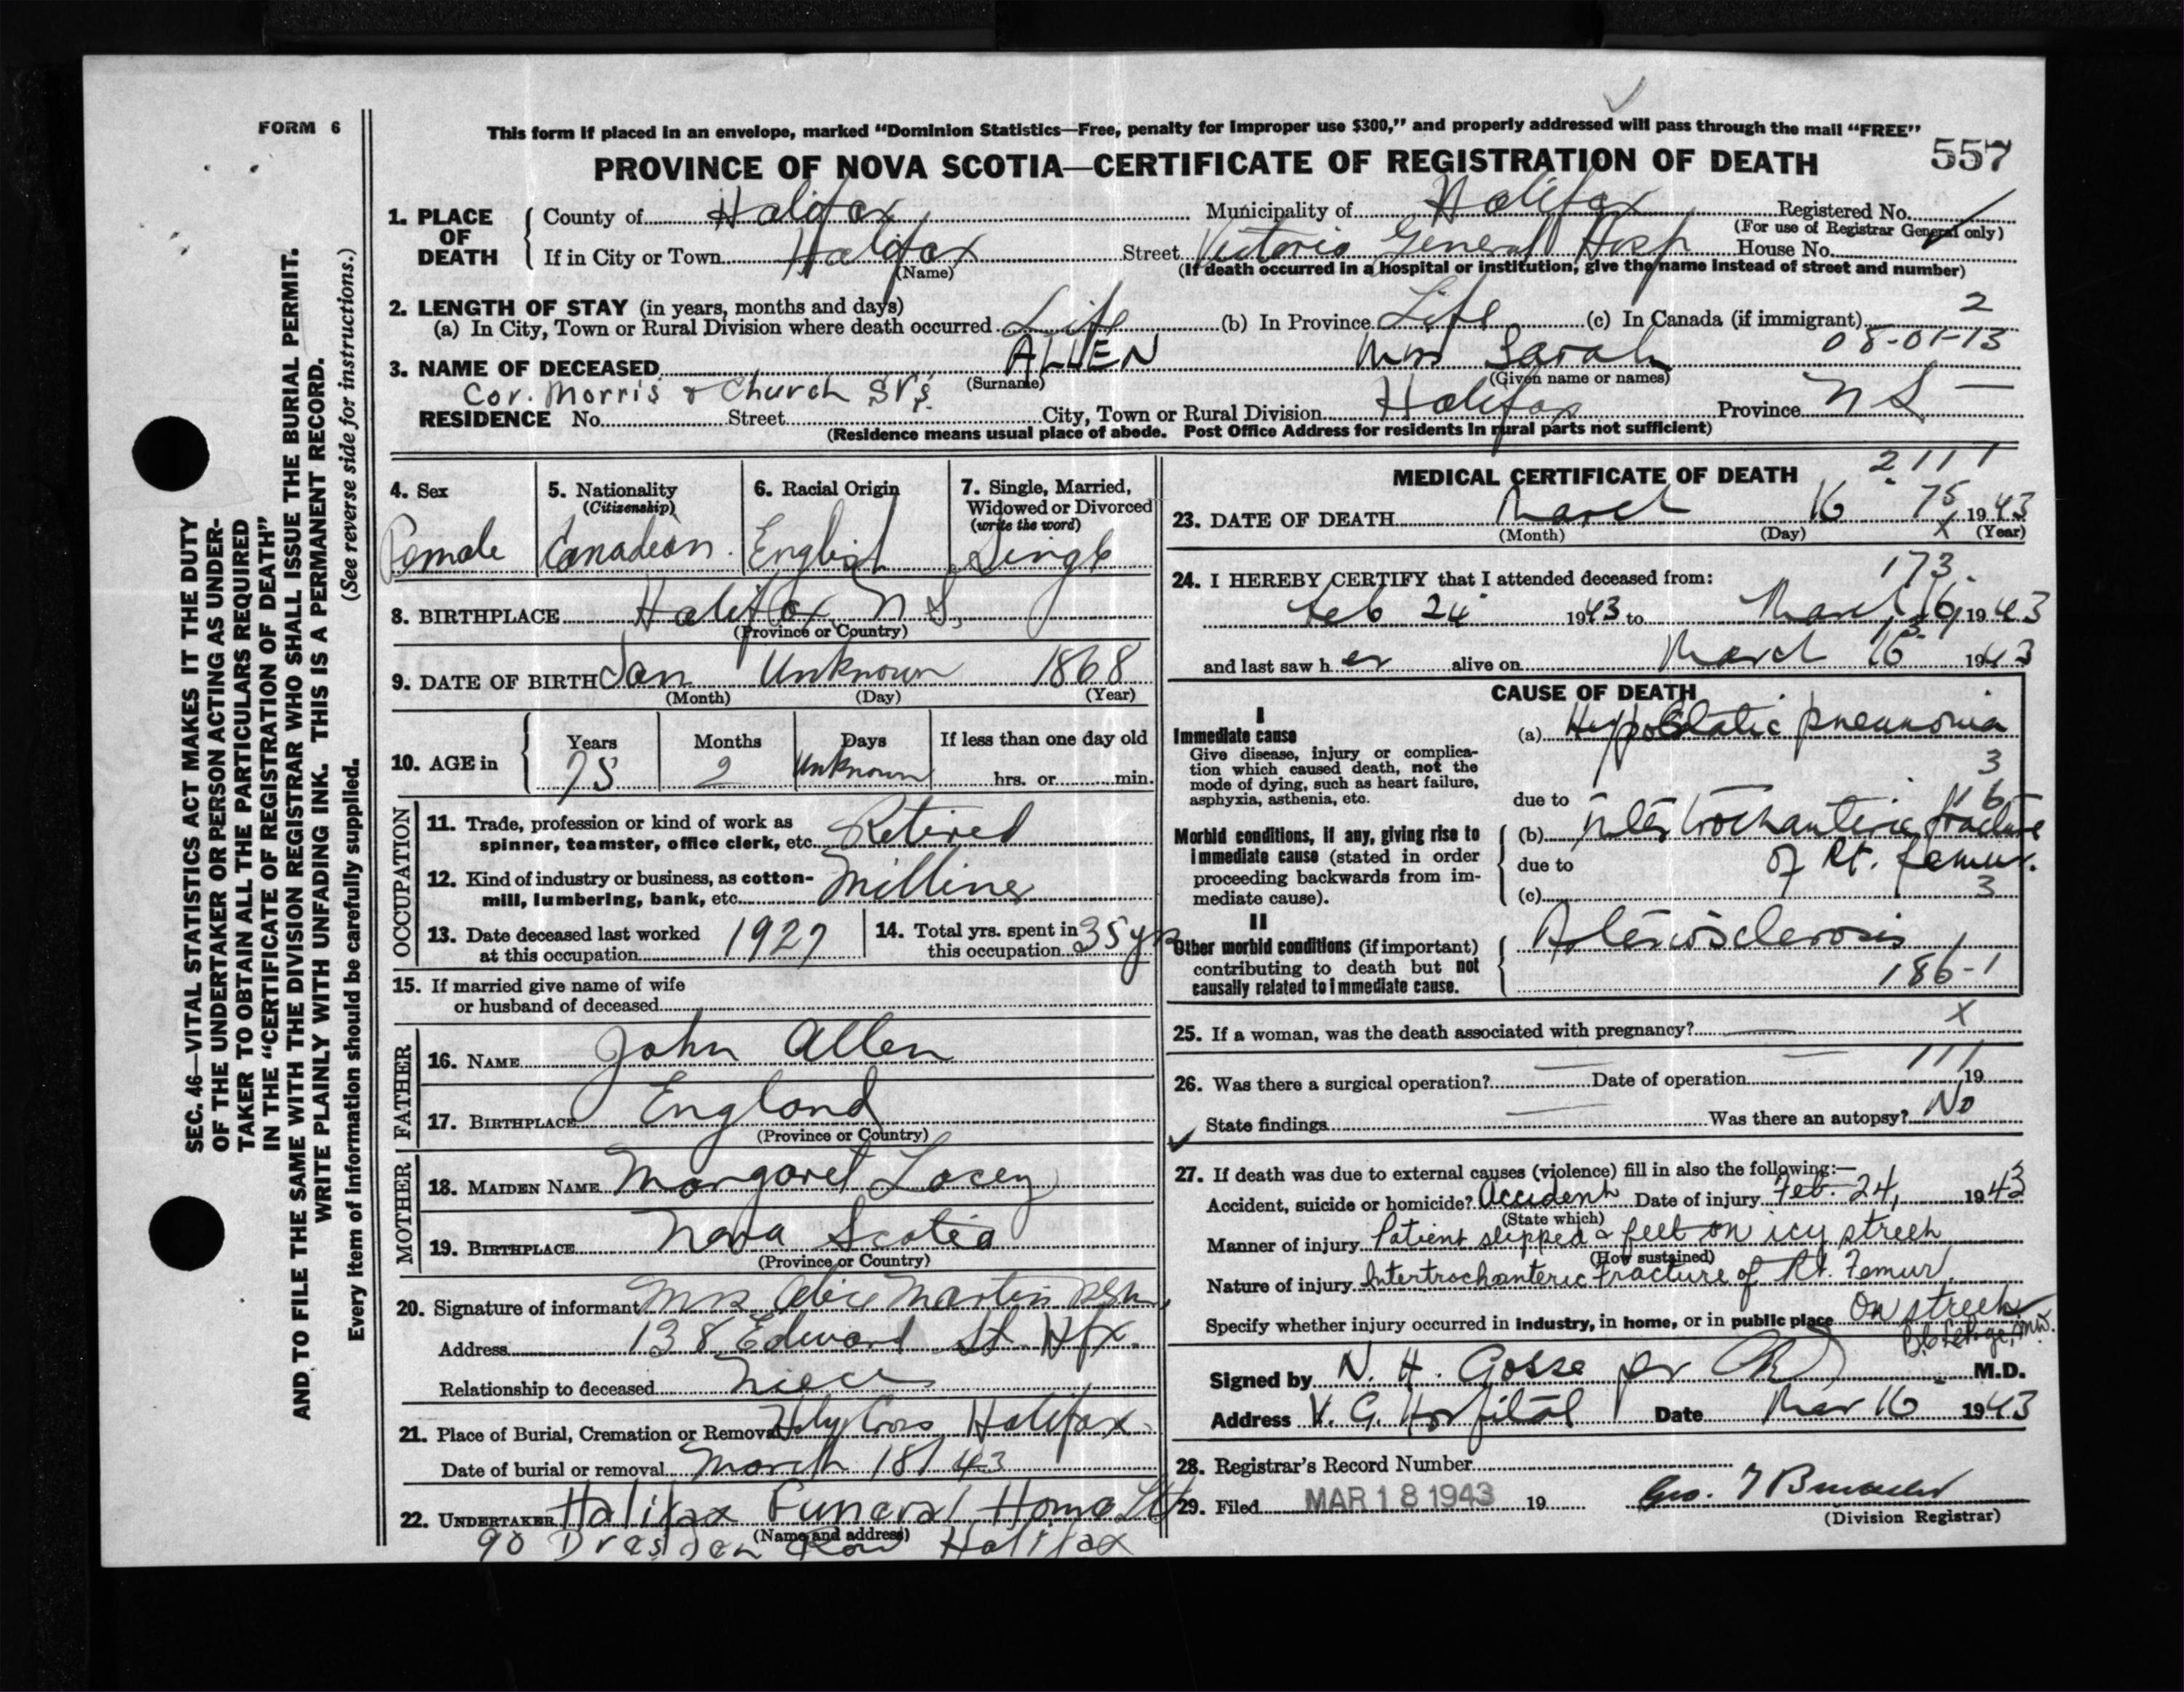 FORM 6
This form if placed in an envelope, marked "Dominion Statistics—Free, penalty for improper use $300," and properly addressed will pass through the mail "FREE"
PROVINCE OF NOVA SCOTIA—CERTIFICATE OF REGISTRATION OF DEATH 557
SEC. 46—VITAL STATISTICS ACT MAKES IT THE DUTY
OF THE UNDERTAKER OR PERSON ACTING AS UNDER-
TAKER TO OBTAIN ALL THE PARTICULARS REQUIRED
IN THE "CERTIFICATE OF REGISTRATION OF DEATH"
AND TO FILE THE SAME WITH THE DIVISION REGISTRAR WHO SHALL ISSUE THE BURIAL PERMIT.
WRITE PLAINLY WITH UNFADING INK. THIS IS A PERMANENT RECORD.
Every item of information should be carefully supplied. (See reverse side for instructions.)
1. PLACE OF DEATH County of Halifax Municipality of Halifax Registered No.
(For use of Registrar General only)
If in City or Town Halifax Street Victoria General Hosp House No.
(Name) (If death occurred in a hospital or institution, give the name instead of street and number)
2. LENGTH OF STAY (in years, months and days)
(a) In City, Town or Rural Division where death occurred Life (b) In Province Life (c) In Canada (if immigrant) 2
08-01-13
3. NAME OF DECEASED ALLEN Mrs Sarah
(Surname) (Given name or names)
Cor. Morris & Church STs.
RESIDENCE No. Street City, Town or Rural Division Halifax Province N S —
(Residence means usual place of abode. Post Office Address for residents in rural parts not sufficient)
4. Sex Female
5. Nationality (Citizenship) Canadian.
6. Racial Origin English
7. Single, Married, Widowed or Divorced (write the word) Single
8. BIRTHPLACE Halifax N S.
(Province or Country)
9. DATE OF BIRTH Jan Unknown 1868
(Month) (Day) (Year)
10. AGE in Years 75 Months 2 Days Unknown If less than one day old hrs. or min.
OCCUPATION
11. Trade, profession or kind of work as
spinner, teamster, office clerk, etc. Retired
12. Kind of industry or business, as cotton-
mill, lumbering, bank, etc. Milliner
13. Date deceased last worked
at this occupation 1927
14. Total yrs. spent in
this occupation 35 yrs
15. If married give name of wife
or husband of deceased
FATHER
16. NAME John Allen
17. BIRTHPLACE England
(Province or Country)
MOTHER
18. MAIDEN NAME Margaret Lacey
19. BIRTHPLACE Nova Scotia
(Province or Country)
20. Signature of informant Mrs Martin
Address 138 Edward St. Hfx.
Relationship to deceased Niece
21. Place of Burial, Cremation or Removal Holy Cross Halifax.
Date of burial or removal March 18/43
22. UNDERTAKER Halifax Funeral Home Ltd
(Name and address)
90 Dresden Row Halifax
MEDICAL CERTIFICATE OF DEATH 2111
23. DATE OF DEATH March 16 75 1943
(Month) (Day) x (Year)
24. I HEREBY CERTIFY that I attended deceased from: 173.
Feb 24 1943 to March 16, 1943
and last saw h er alive on March 16 1943
CAUSE OF DEATH
I
Immediate cause
Give disease, injury or complica-
tion which caused death, not the
mode of dying, such as heart failure,
asphyxia, asthenia, etc.
(a) Hypostatic pneumonia
3
due to
Morbid conditions, if any, giving rise to
immediate cause (stated in order
proceeding backwards from im-
mediate cause).
(b) intertrochanteric fracture
due to of Rt. femur.
(c) 3
II
Other morbid conditions (if important)
contributing to death but not
causally related to immediate cause.
Arteriosclerosis
186-1
25. If a woman, was the death associated with pregnancy? — x
26. Was there a surgical operation? — Date of operation — 111 19
State findings — Was there an autopsy? No
27. If death was due to external causes (violence) fill in also the following:—
Accident, suicide or homicide? Accident Date of injury Feb. 24, 1943
(State which)
Manner of injury Patient slipped & fell on icy street
(How sustained)
Nature of injury Intertrochanteric Fracture of Rt. Femur.
Specify whether injury occurred in industry, in home, or in public place On street
Signed by N. H. Gosse per M.D.
Address V. G. Hospital Date Mar 16 1943
28. Registrar's Record Number
29. Filed MAR 18 1943 19 Geo.
(Division Registrar)